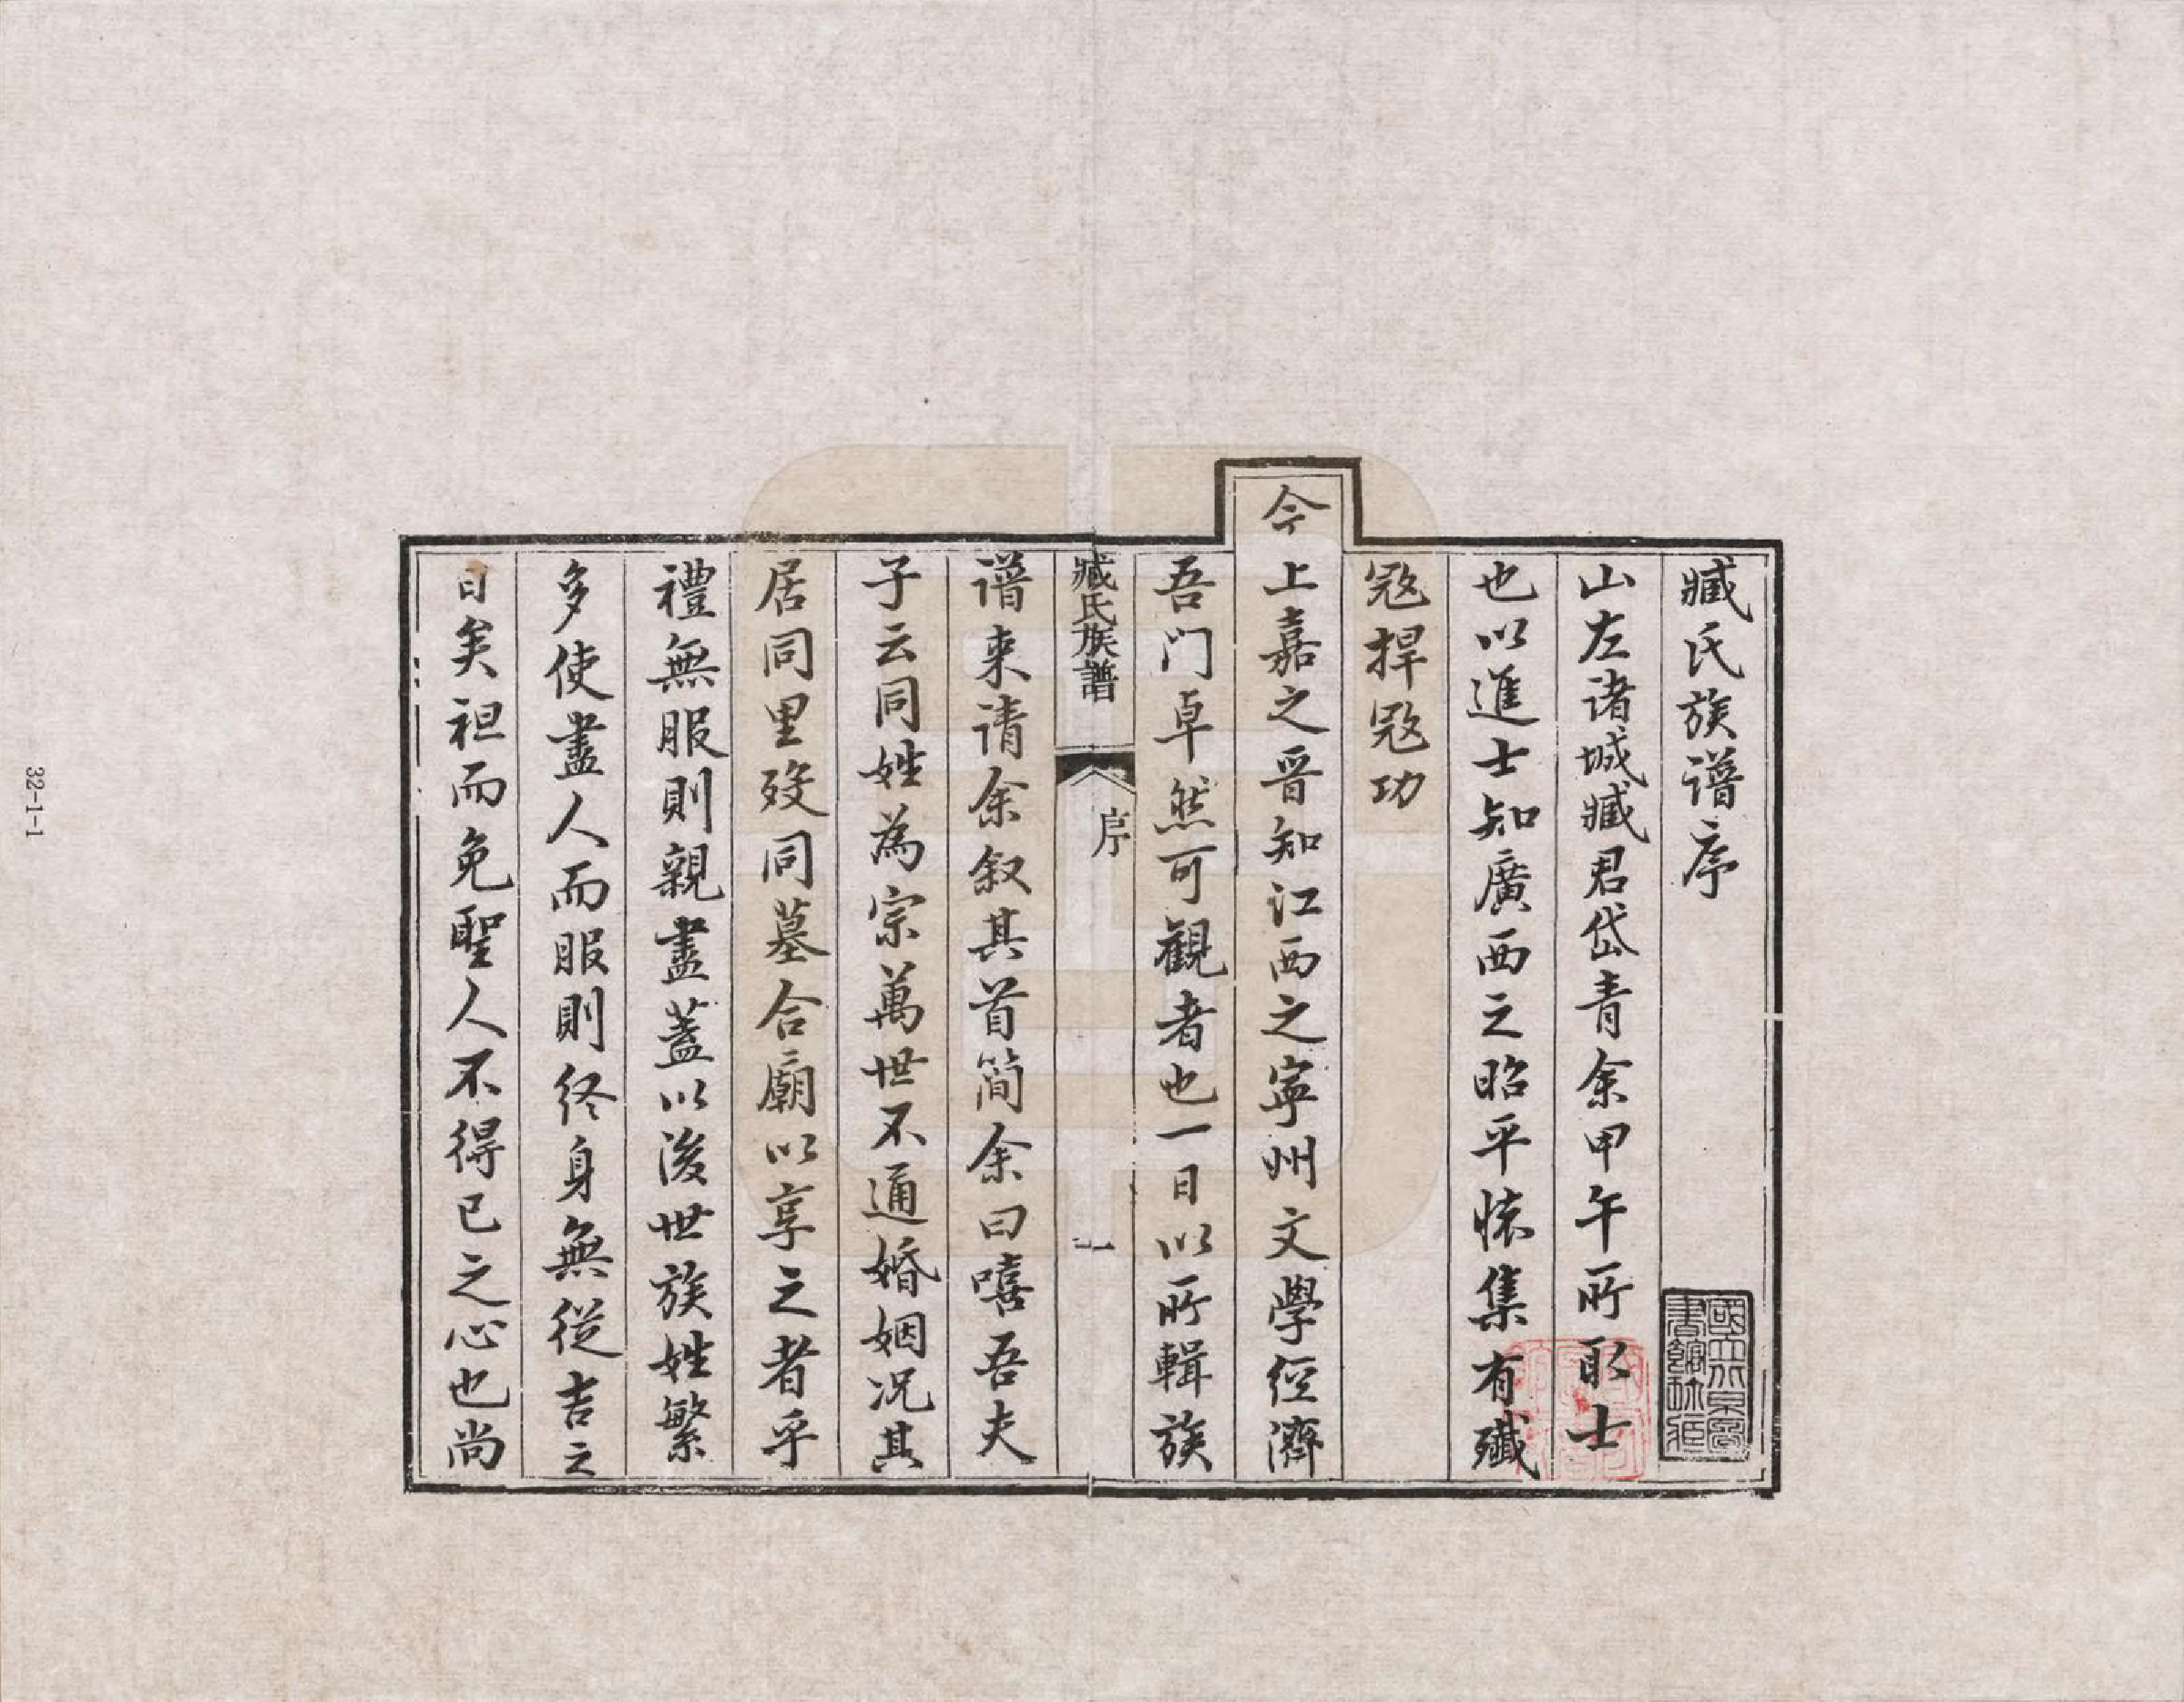 臧氏族谱序
山左诸城臧君岱青余甲午所取士
也以進士知廣西之昭平懐集有殱
㓂捍㓂功
今上嘉之晋知江西之寧州文學经濟
吾门卓然可觀者也一日以所輯族
臧氏族譜
序
一
谱来请余叙其首简余曰嘻吾夫
子云同姓為宗萬世不通婚姻况其
居同里殁同墓合廟以享之者乎
禮無服則親盡蓋以後世族姓繁
多使盡人而服則终身無従吉之
日矣袒而免聖人不得已之心也尚
32-1-1